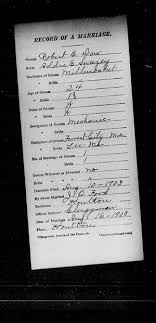 RECORD OF A MARRIAGE.
Groom Robert E. Dow
Bride Addie E. Swazey
Residence of Groom Millinocket
" Bride "
Age of Groom 24
" Bride 18
Color of Groom W
" Bride W
Occupation of Groom Mechanic
" Bride
Birthplace of Groom Forest City Me
" Bride Lee Me
No. of Marriage of Groom 1
" Bride 1
Groom Widowed or Divorced no
Bride " no
Intention Aug 10 - 1903
By Whom
Residence Houlton
Official Station Clergyman
Date of Marriage Aug 16 - 1903
Place Houlton